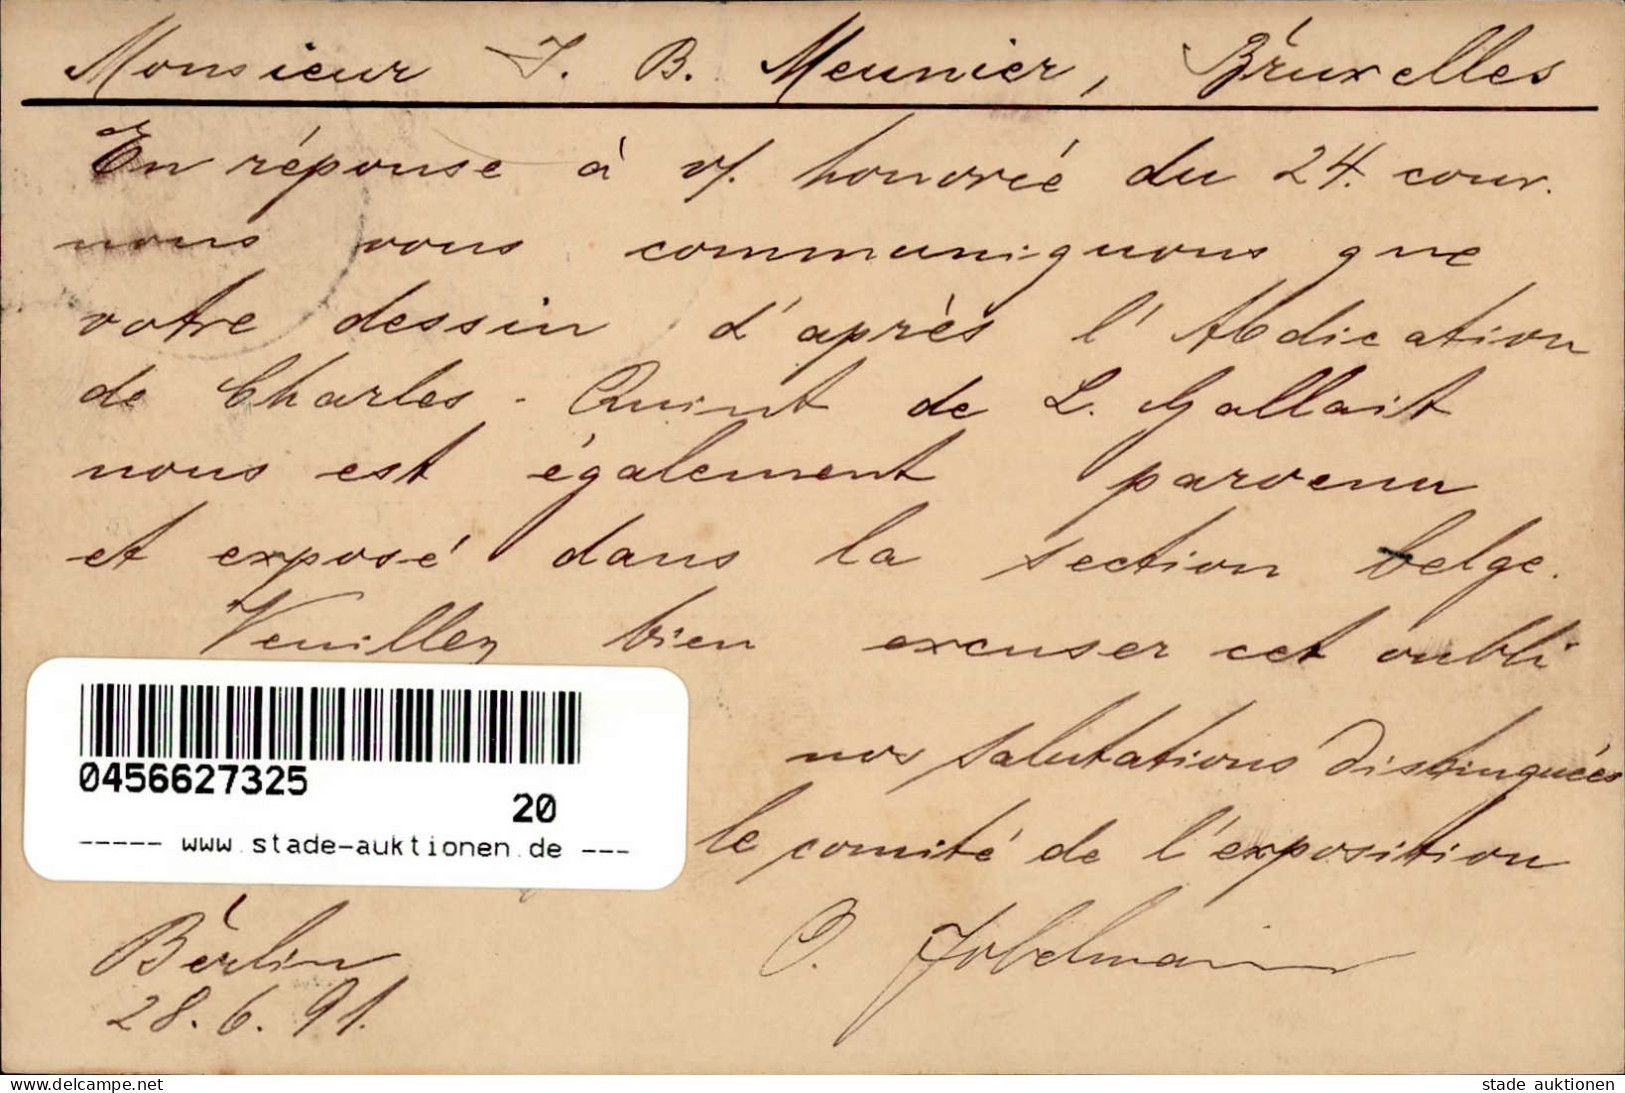 Monsieur J. B. Meunier, Bruxelles
En réponse à v/. honorée du 24. cour.
nous vous communiquons que
votre dessin d'après l'Abdication
de Charles-Quint de L. Gallait
nous est également parvenu
et exposé dans la section belge.
Veuillez bien excuser cet oubli
nos salutations distinguées
le comité de l'exposition
0456627325
20
----- www.stade-auktionen.de ---
Berlin
28.6.91.
delcampe.net
stade auktionen